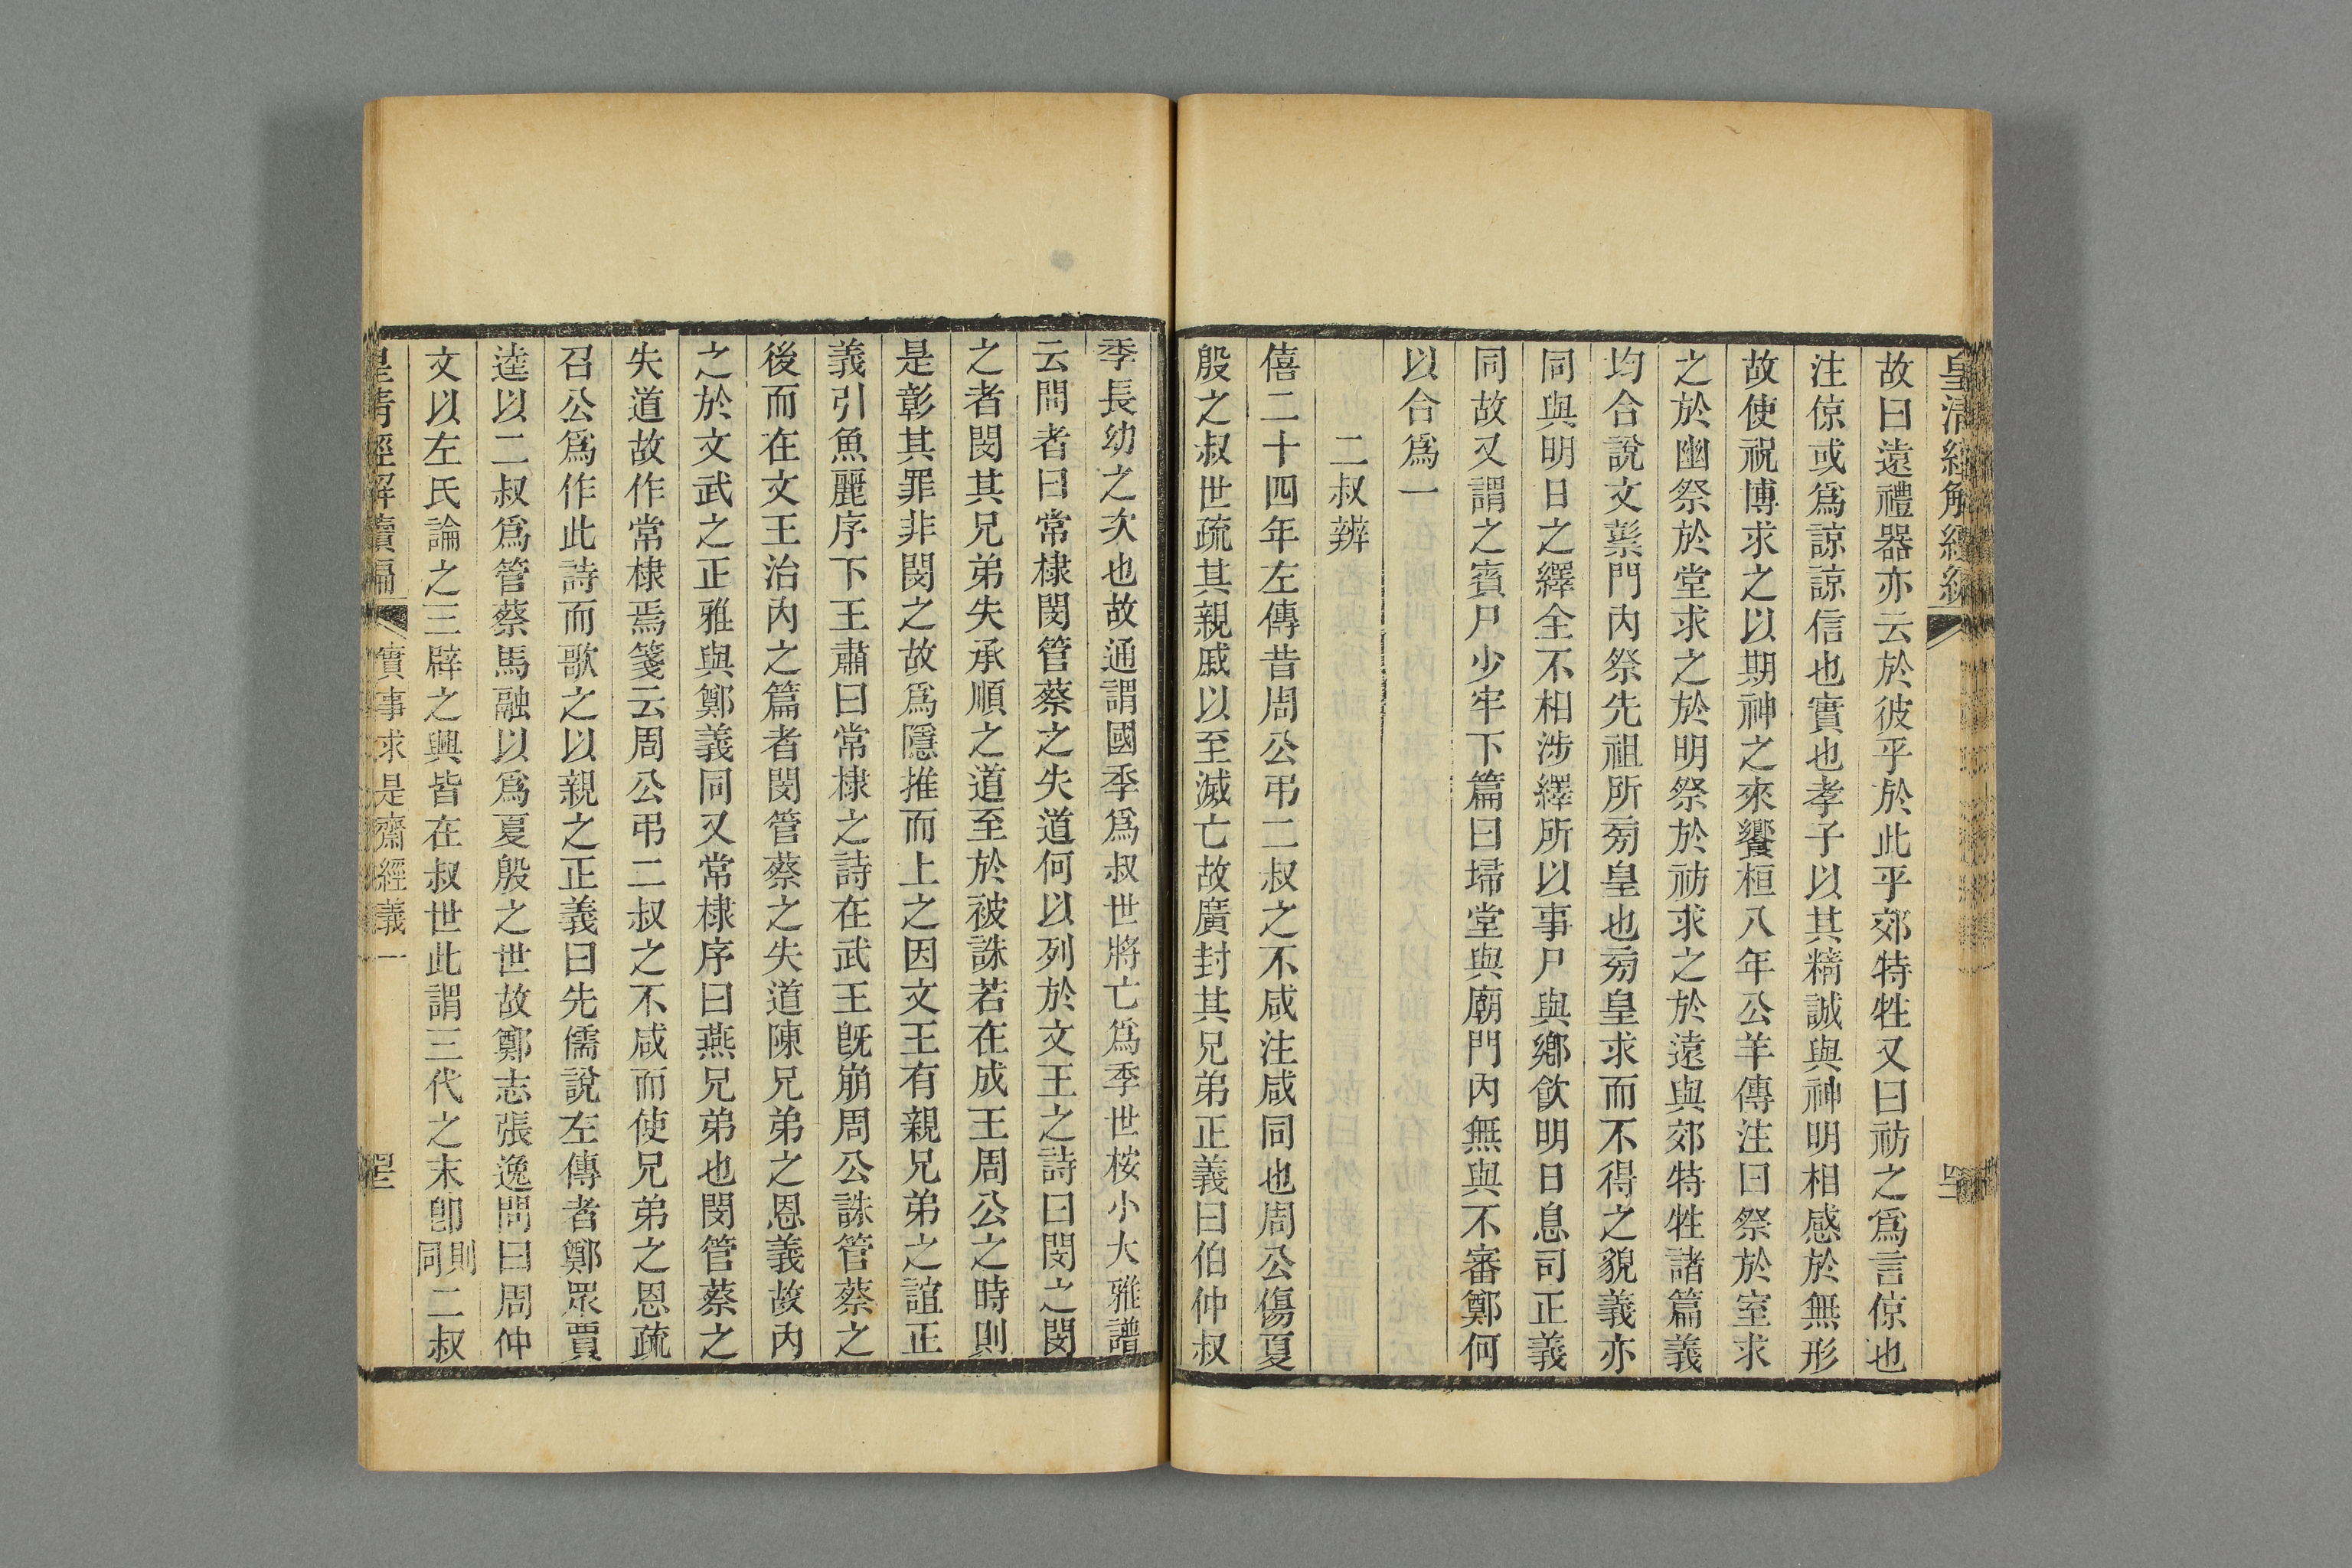 皇清經解續編
故曰遠禮器亦云於彼乎於此乎郊特牲又曰祊之爲言倞也
注倞或爲諒諒信也實也孝子以其精誠與神明相感於無形
故使祝博求之以期神之來饗桓八年公羊傳注曰祭於室求
之於幽祭於堂求之於明祭於祊求之於遠與郊特牲諸篇義
均合說文𥛱門內祭先祖所㫄皇也㫄皇求而不得之貌義亦
同與明日之繹全不相涉繹所以事尸與鄉飮明日息司正義
同故又謂之賓尸少牢下篇曰埽堂與廟門內無與不審鄭何
以合爲一
二叔辨
僖二十四年左傳昔周公弔二叔之不咸注咸同也周公傷夏
殷之叔世疏其親戚以至滅亡故廣封其兄弟正義曰伯仲叔
季長幼之次也故通謂國季爲叔世將亡爲季世桉小大雅譜
云問者曰常棣閔管蔡之失道何以列於文王之詩曰閔之閔
之者閔其兄弟失承順之道至於被誅若在成王周公之時則
是彰其罪非閔之故爲隱推而上之因文王有親兄弟之誼正
義引魚麗序下王肅曰常棣之詩在武王旣崩周公誅管蔡之
後而在文王治內之篇者閔管蔡之失道陳兄弟之恩義故內
之於文武之正雅與鄭義同又常棣序曰燕兄弟也閔管蔡之
失道故作常棣焉箋云周公弔二叔之不咸而使兄弟之恩疏
召公爲作此詩而歌之以親之正義曰先儒說左傳者鄭眾賈
逵以二叔爲管蔡馬融以爲夏殷之世故鄭志張逸問曰周仲
文以左氏論之三辟之興皆在叔世此謂三代之末卽則同二叔
皇清經解續編 實事求是齋經義一